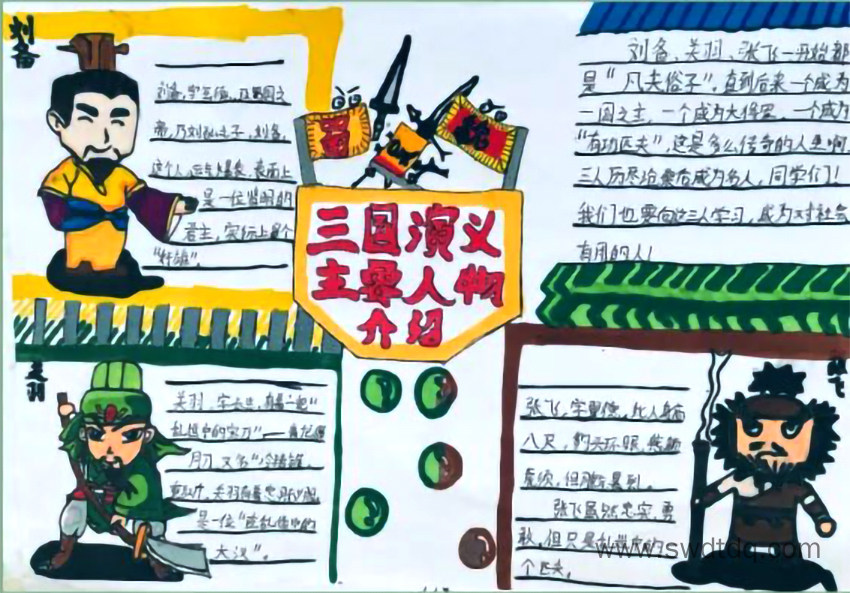 刘备
刘备，字玄德，
帝，乃刘弘之子，刘备，
这个人 表面上
是一位贤明的
君主，实际上是个
"奸雄"。
蜀
魏
三国演义
主要人物
介绍
刘备、关羽、张飞一开始都
是"凡夫俗子"。直到后来一个成为
一国之主，一个成为大将军，一个成为
"有功匹夫"，这是多么传奇的人生啊
三人历尽沧桑后成为名人，同学们！
我们也要向这三人学习，成为对社会
有用的人！
关羽
关羽，字云长，有着一把"
乱世中的宝刀"——青龙偃
月刀，又名"冷艳锯，
关羽有着忠肝义胆，
是一位"在乱世中的
大汉"。
张飞
张飞，字翼德，此人身高
八尺，豹头环眼，燕颔
虎须，但刚烈暴烈。
张飞虽然忠实，勇
敢，但只是乱世中的
个匹夫。
www.swdtdq.com